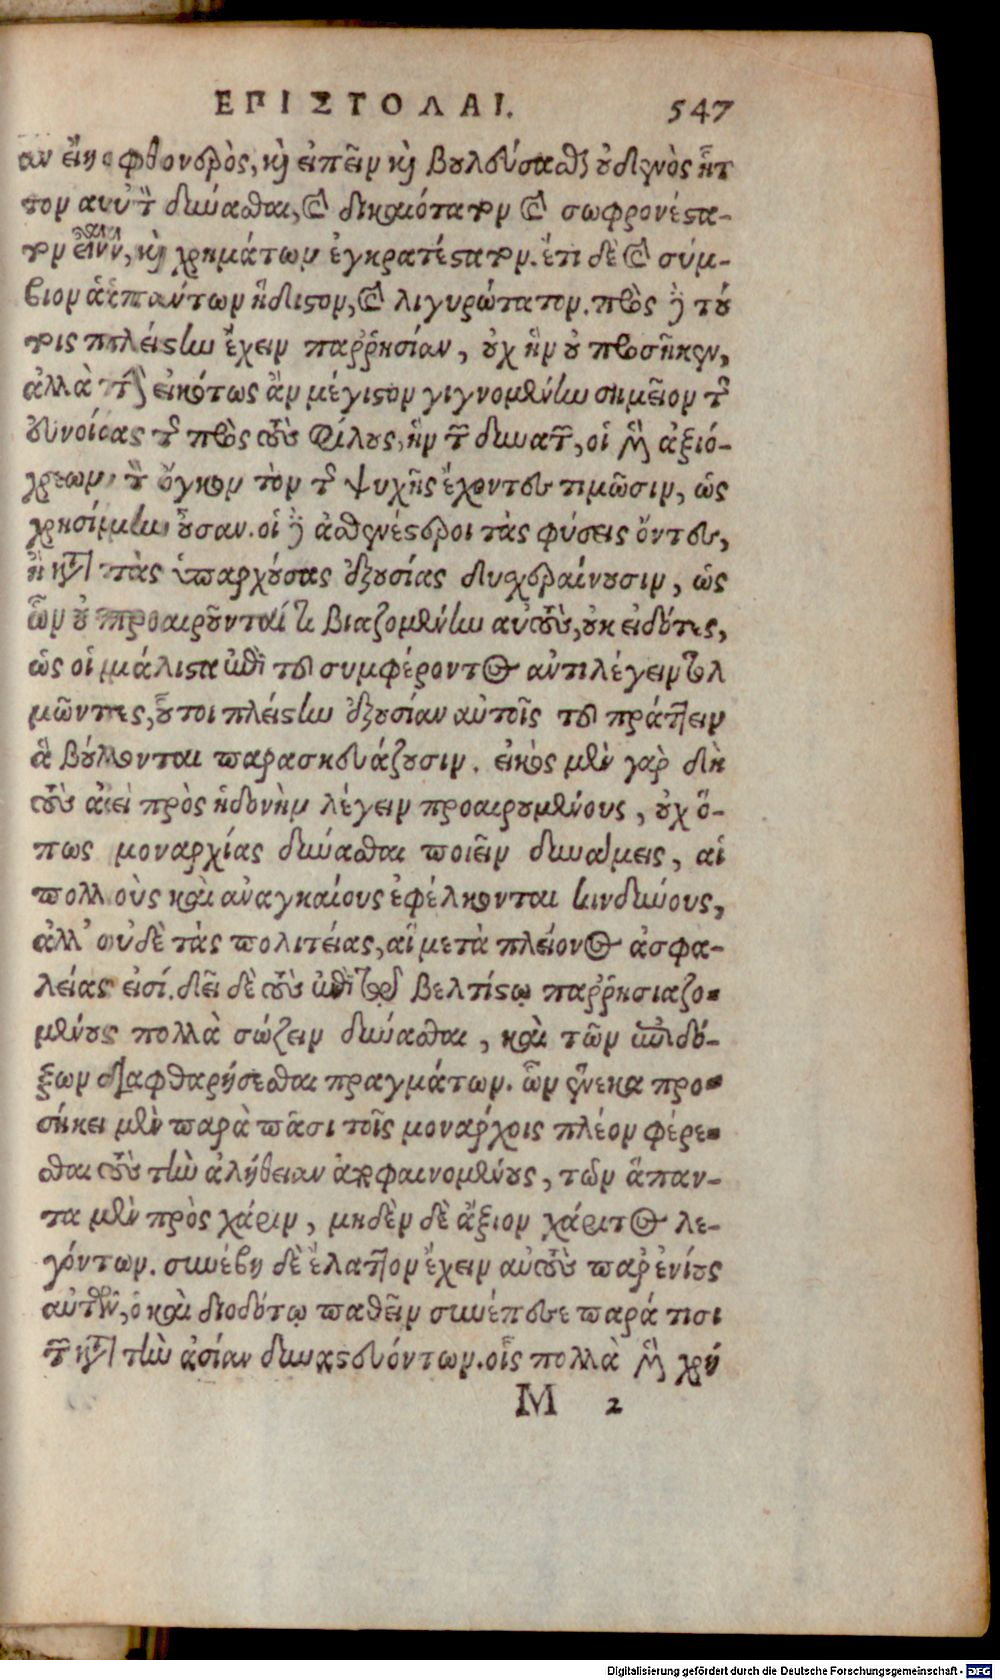 ΕΠΙΣΤΟΛΑΙ. 547
αν εἴη ὁ φθονερὸς, καὶ εἰπεῖν καὶ βουλεύσασθαι οὐδενὸς ἧτ
τον αὐτοῦ δύνασθαι, καὶ δικαιότατον καὶ σωφρονέστα-
τον εἶναι, καὶ χρημάτων ἐγκρατέστατον. ἔτι δὲ καὶ σύμ-
βιον ἁπάντων ἥδιστον, καὶ λιγυρώτατον. πρὸς δὲ τού
τοις πλείστην ἔχειν παῤῥησίαν, οὐχ ἣν οὐ προσῆκεν,
ἀλλὰ τὴν εἰκότως ἂν μέγιστον γιγνομένην σημεῖον τῆς
εὐνοίας τῆς πρὸς τοὺς φίλους, ἣν τῶν δυναστῶν, οἱ μὲν ἀξιό-
χρεων τὸν ὄγκον τὸν τῆς ψυχῆς ἔχοντες τιμῶσιν, ὡς
χρησίμην οὖσαν. οἱ δὲ ἀσθενέστεροι τὰς φύσεις ὄντες,
ἢ κατὰ τὰς ὑπαρχούσας ἐξουσίας δυσχεραίνουσιν, ὡς
ὧν οὐ προαιροῦνταί τι βιαζομένην αὐτοὺς, οὐκ εἰδότες,
ὡς οἱ μάλιστα περὶ τοῦ συμφέροντος ἀντιλέγειν τολ
μῶντες, οὗτοι πλείστην ἐξουσίαν αὐτοῖς τοῦ πράττειν
ἃ βούλονται παρασκευάζουσιν. εἰκὸς μὲν γὰρ διὰ
τοὺς ἀεὶ πρὸς ἡδονὴν λέγειν προαιρουμένους, οὐχ ὅ-
πως μοναρχίας δύνασθαι ποιεῖν δυνάμεις, αἱ
πολλοὺς καὶ ἀναγκαίους ἐφέλκονται κινδύνους,
ἀλλ' οὐδὲ τὰς πολιτείας, αἳ μετὰ πλείονος ἀσφα-
λείας εἰσί. δεῖ δὲ τοὺς ἐπὶ τῷ βελτίστῳ παῤῥησιαζο-
μένους πολλὰ σώζειν δύνασθαι, καὶ τῶν ἐπιδό-
ξων διαφθαρήσεσθαι πραγμάτων. ὧν ἕνεκα προ-
σήκει μὲν παρὰ πᾶσι τοῖς μονάρχοις πλέον φέρε-
σθαι τοὺς τὴν ἀλήθειαν ἀποφαινομένους, τῶν ἅπαν-
τα μὲν πρὸς χάριν, μηδὲν δὲ ἄξιον χάριτος λε-
γόντων. συνέβη δὲ ἔλαττον ἔχειν αὐτοὺς παρ' ἐνίοις
αὐτῶν, ὃ καὶ διοδότῳ παθεῖν συνέπεσε παρά τισι
τῶν κατὰ τὴν ἀσίαν δυναστευόντων. οἷς πολλὰ μὲν χρή
M 2
Digitalisierung gefördert durch die Deutsche Forschungsgemeinschaft - DFG